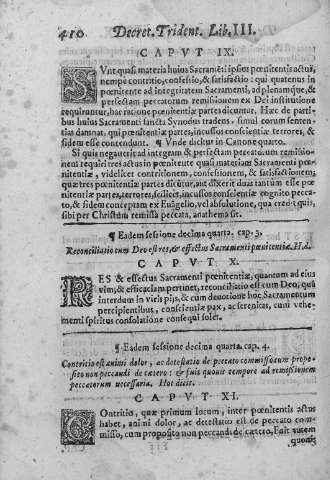 410 Decret. Trident. Lib. III.
CAPVT IX.
SVnt quasi materia huius Sacramẽti ipsius pœnitentis actus,
nempe contritio, confessio, & satisfactio: qui quatenus in
pœnitente ad integritatem Sacramenti, ad plenamque, &
perfectam peccatorum remissionem ex Dei institutione
requiruntur, hac ratione pœnitentiæ partes dicuntur. Hæc de parti-
bus huius Sacramenti sancta Synodus tradens, simul eorum senten-
tias damnat, qui pœnitentiæ partes, incussos conscientiæ terrores, &
fidem esse contendunt. ¶ Vnde dicitur in Canone quarto.
Si quis negauerit ad integram & perfectam peccatorum remissio-
nem requiri tres actus in pœnitente quasi materiam Sacramenti pœ-
nitentiæ, videlicet contritionem, confessionem, & satisfactionem;
quæ tres pœnitentiæ partes dicũtur, aut dixerit duas tantùm esse pœ-
nitentiæ partes, terrores, scilicet, incussos conscientiæ cognito pecca-
to, & fidem conceptam ex Euãgelio, vel absolutione, qua credit quis,
sibi per Christum remissa peccata, anathema sit.
¶ Eadem sessione decima quarta. cap. 3.
Reconciliatio cum Deo est res, & effectus Sacramenti pœnitentiæ. H.d.
CAPVT X.
RES & effectus Sacramenti pœnitentiæ, quantum ad eius
vim, & efficaciam pertinet, reconciliatio est cum Deo, quã
interdum in viris pijs, & cum deuotione hoc Sacramentum
percipientibus, conscientiæ pax, ac serenitas, cum vehe-
menti spiritus consolatione consequi solet.
¶ Eadem sessione decima quarta. cap. 4.
Contritio est animi dolor, ac detestatio de peccato commisso cum propo-
sito non peccandi de cætero: & fuit quouis tempore ad remissionem
peccatorum necessaria. Hoc dicit.
CAPVT XI.
COntritio, quæ primum locum, inter pœnitentis actus
habet, animi dolor, ac detestatio est de peccato com-
misso, cum proposito non peccandi de cætero. Fuit autem
quouis